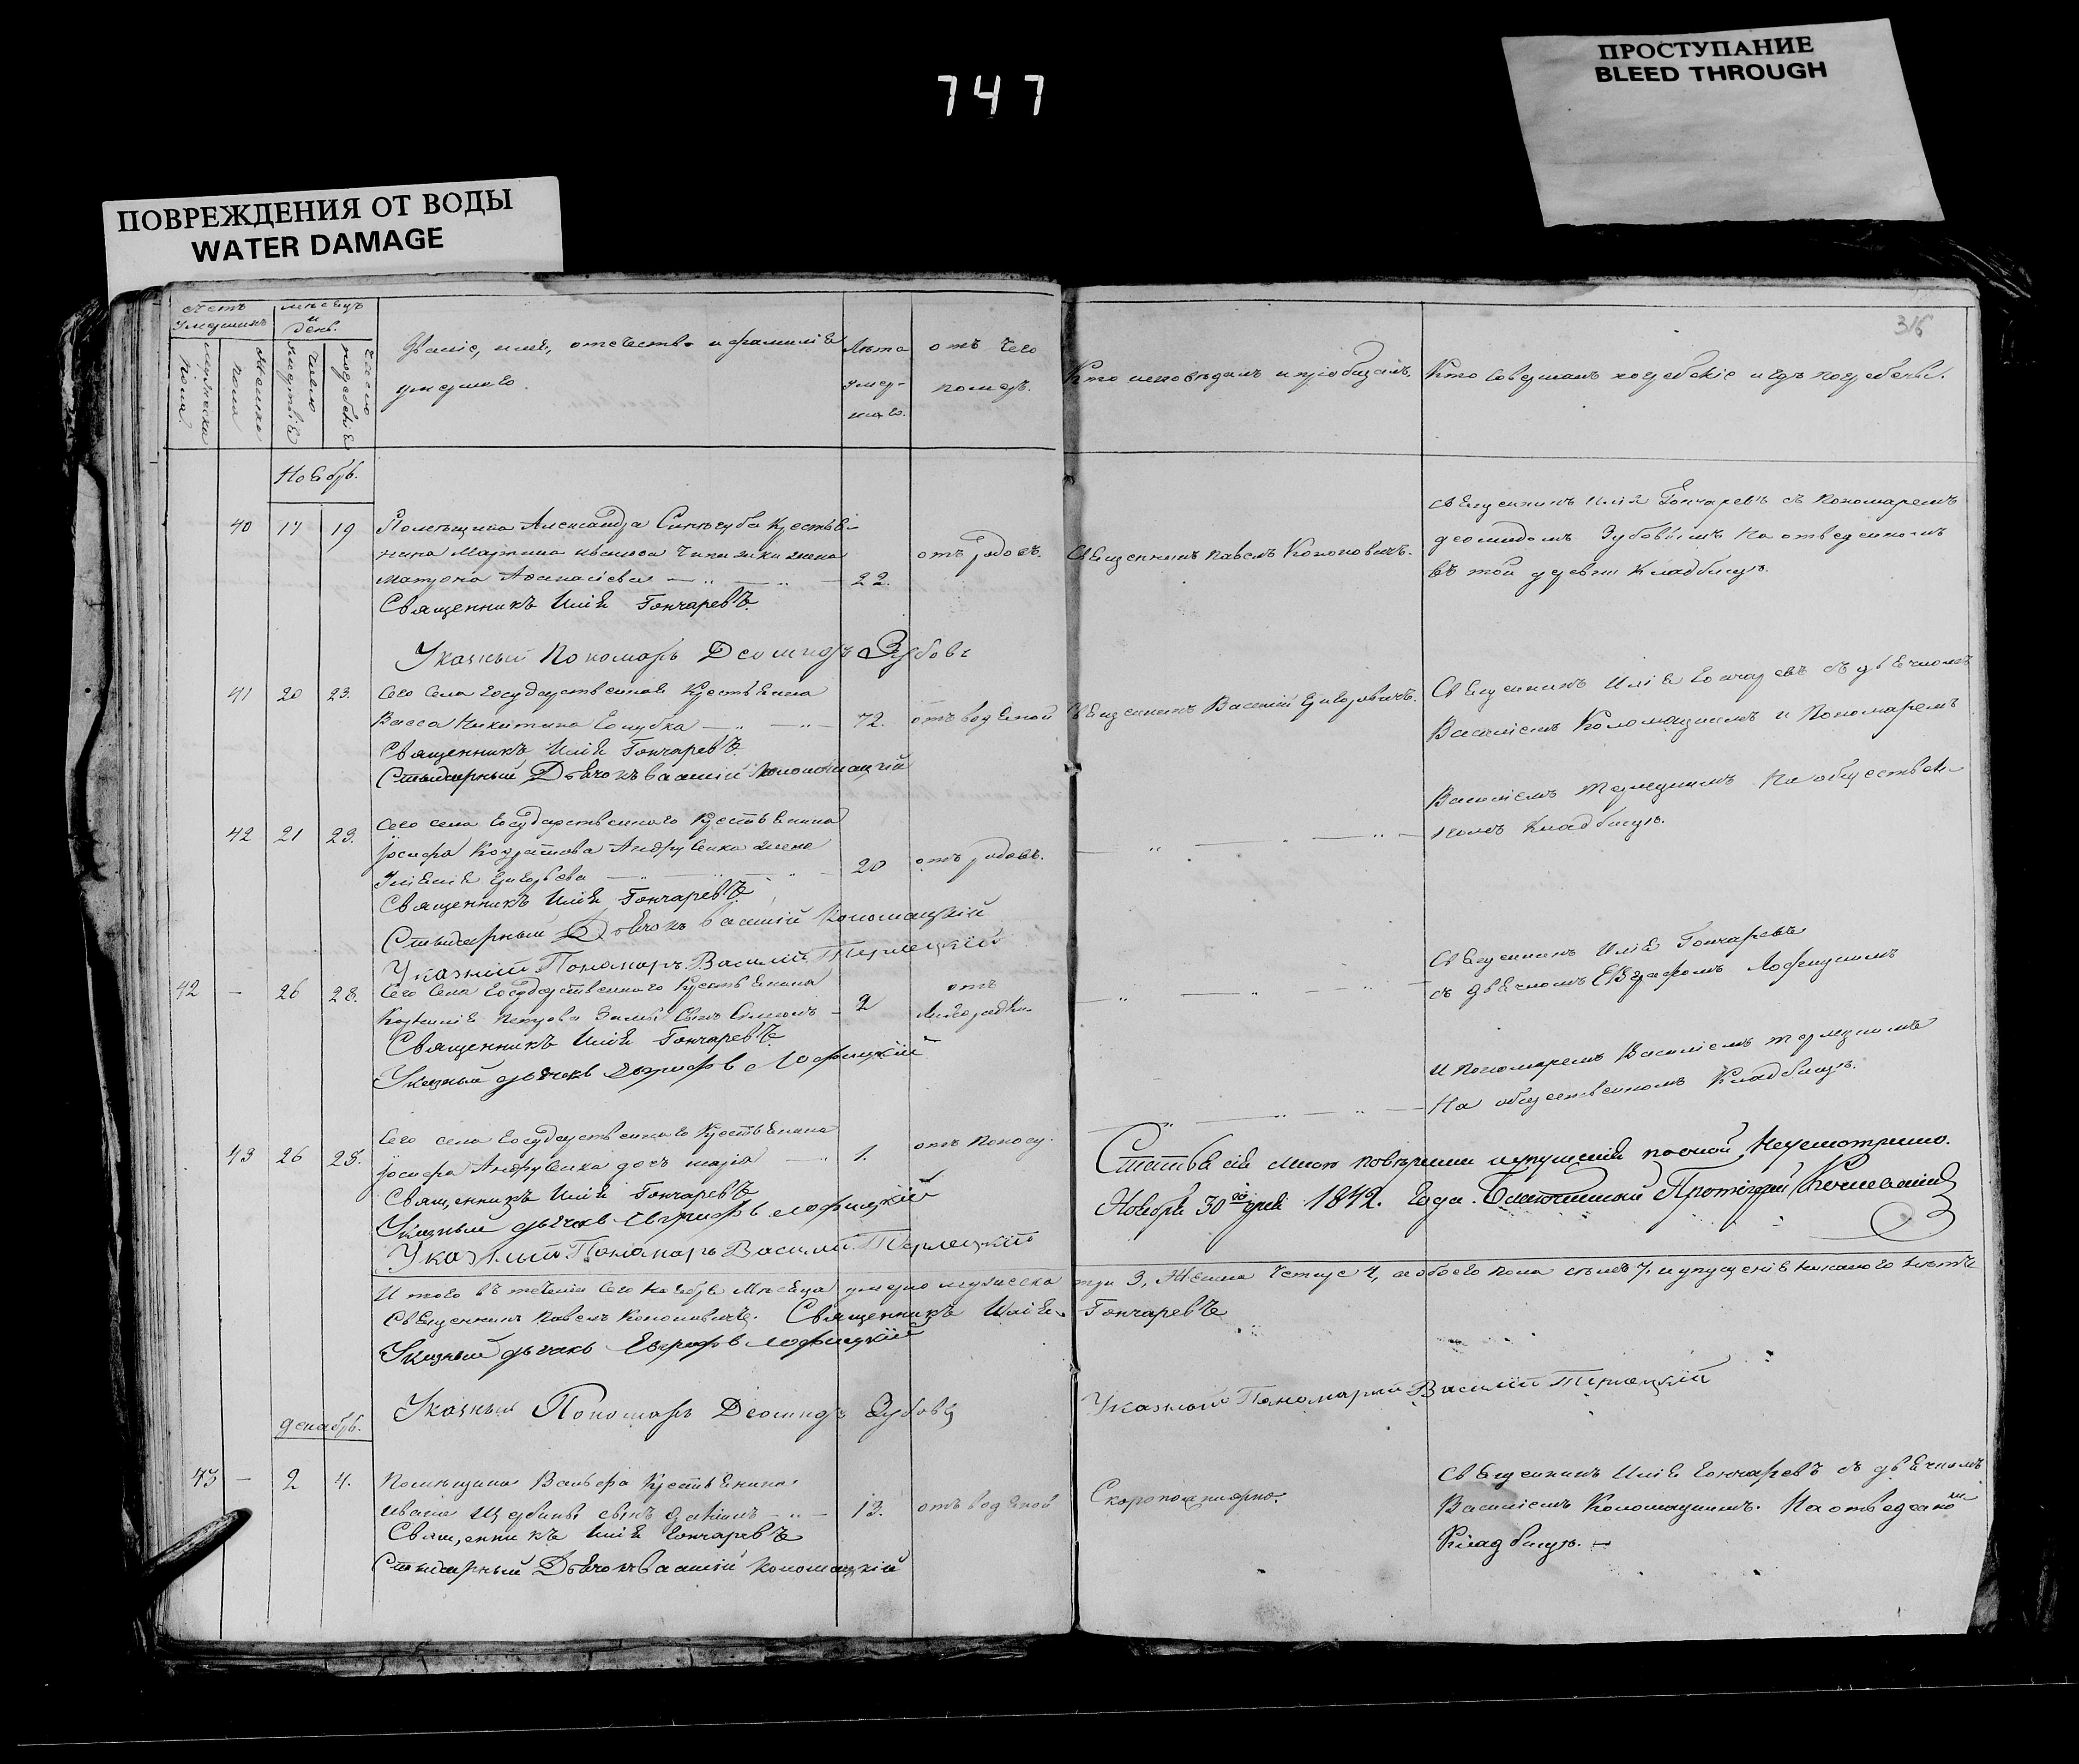 747
ПРОСТУПАНИЕ
BLEED THROUGH
ПОВРЕЖДЕНИЯ ОТ ВОДЫ
WATER DAMAGE
316
Званіе, имя, отечество и фамилія
умершаго.
Лѣта
умер-
шаго.
отъ чего
померъ.
Кто исповѣдалъ и пріобщалъ.
Кто совершалъ погребеніе и гдѣ погребены.
Ноябрь.
40 17 19 Помѣщика Александра Синегуба крестья-
нина Мартина жена
Матрона Афанасіева 22. отъ родовъ. Священникъ Павелъ Кононовичъ.
Священникъ Илія Гончаревъ съ пономаремъ
Деомидомъ Зубовымъ на отведенномъ
въ той деревни кладбищѣ.
Священникъ Илія Гончаревъ
Указный Пономарь Деомидъ Зубовъ
41 20 23. Сего села государственная крестьянка
Васса Никитина Голубка 72. отъ водяной Священникъ Василій Григоровичъ.
Священникъ Илія Гончаревъ съ дьячкомъ
Василіемъ Коломацкимъ и пономаремъ
Василіемъ Терлецкимъ на обществен-
номъ кладбищѣ.
Священникъ Илія Гончаревъ
Стихарный Дьячокъ Василій Коломацкій
42 21 23. Сего села государственнаго крестьянина
Іосифа Кондратова Андрущенка жена
Григорьева 20 отъ родовъ.
Священникъ Илія Гончаревъ
Стихарный Дьячокъ Василій Коломацкій
Указный Пономарь Василій Терлецкій
42 — 26 28. Сего села государственнаго крестьянина
Корнилія Петрова сынъ 2 отъ
лихорадки
Священникъ Илія Гончаревъ
съ дьячкомъ Евграфомъ Лофицкимъ
и пономаремъ Василіемъ Терлецкимъ
на общественномъ кладбищѣ.
Священникъ Илія Гончаревъ
Указный дьячекъ Евграфъ Лофицкій
43 26 28. Сего села государственнаго крестьянина
Іосифа Андрущенка дочь Марія 1. отъ поносу.
Священникъ Илія Гончаревъ
Указный дьячекъ Евграфъ Лофицкій
Указный Пономарь Василій Терлецкій
Статьи сіи мною повѣрены и упущенія по оной неусмотрено.
Ноября 30го дня 1842. года. Благочинный Протоіерей
Итого въ теченіи сего ноября мѣсяца умерло мужеска три 3, женска четыре 4, а обоего пола семь 7, и упущенія никакого нѣтъ
Священникъ Павелъ Кононовичъ. Священникъ Илія Гончаревъ
Указный дьячекъ Евграфъ Лофицкій
Указный Пономарь Деомидъ Зубовъ
Указный Пономарь Василій Терлецкій
декабрь.
43 — 2 4. Помѣщика крестьянина
Ивана Щербины сынъ 13. отъ водяной Скоропостижно.
Священникъ Илія Гончаревъ съ дьячкомъ
Василіемъ Коломацкимъ. На отведенномъ
кладбищѣ.
Священникъ Илія Гончаревъ
Стихарный Дьячокъ Василій Коломацкій